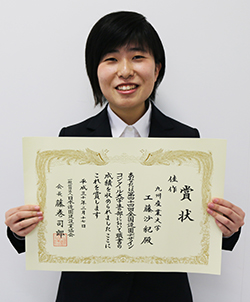 賞状
佳作
九州産業大学
工藤沙紀殿
あなたは第四十四回全国造園デザイン
コンクール大学生部において頭書の
成績を収められましたここに
これを賞します
平成三十年二月
会長 藤巻司郎